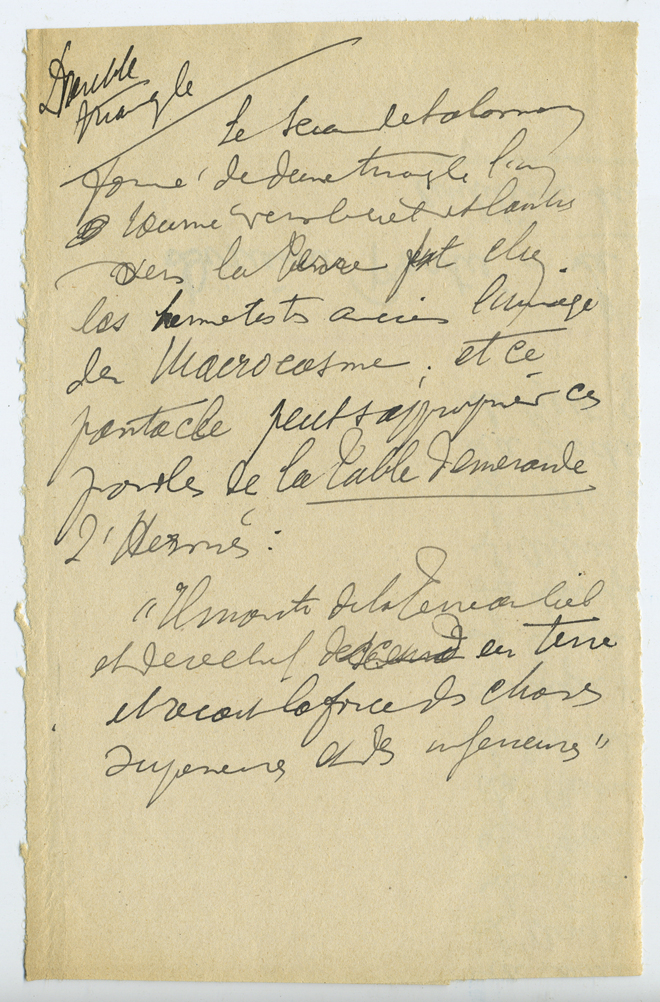 Double
triangle
Le Sceau de Salomon
formé de deux triangle l'un
tourné vers le ciel et l'autre
vers la Terre est chez
les hermetistes anciens l'image
du Macrocosme. et ce
pantacle peut s'approprier ces
paroles de la Table d'emeraude
d'Hermés :
"Il monte de la Terre au Ciel
et derechef descend en terre
et recoit la force des choses
superieures et des inferieures"